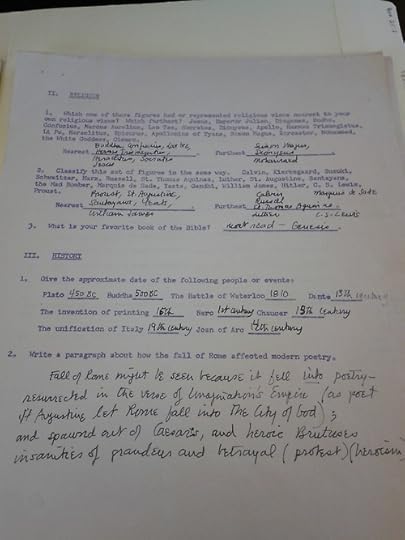 II. RELIGION
1. Which one of these figures had or represented religious views nearest to your
own religious views? Which furthest? Jesus, Emperor Julian, Diogenes, Buddha,
Confucius, Marcus Aurelius, Lao Tse, Socrates, Dionysus, Apollo, Hermes Trismegistus,
Li Po, Heraclitus, Epicurus, Apollonius of Tyana, Simon Magus, Zoroaster, Mohammed,
the White Goddess, Cicero.
Buddha, Confucius, Lao Tse,
Nearest Hermes Trismegistus
Heraclitus, Socrates
Jesus
Simon Magus,
Furthest Dionysus
Mohammed
2. Classify this set of figures in the same way. Calvin, Kierkegaard, Suzuki,
Schweitzer, Marx, Russell, St. Thomas Aquinas, Luther, St. Augustine, Santayana,
the Mad Bomber, Marquis de Sade, Yeats, Gandhi, William James, Hitler, C. S. Lewis,
Proust.
Proust, St. Augustine,
Nearest Santayana, Yeats,
William James
Calvin Marquis de Sade
Russell
Furthest St. Thomas Aquinas
Hitler C.S. Lewis
3. What is your favorite book of the Bible? most read - Genesis
III. HISTORY
1. Give the approximate date of the following people or events:
Plato 450 BC Buddha 500 BC The Battle of Waterloo 1810 Dante 13th century
The invention of printing 16th Nero 1st century Chaucer 15th century
The unification of Italy 19th century Joan of Arc 12th century
2. Write a paragraph about how the fall of Rome affected modern poetry.
Fall of Rome might be seen because it fell into poetry-
resurrected in the verse of Imagination's Empire (as poet
St Augustine let Rome fall into The City of God);
and spawned out of Caesars, and heroic Brutuses
insanities of grandeur and betrayal (protest) (heroism)